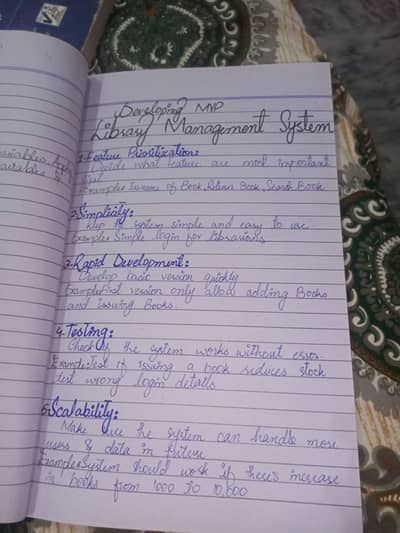 Developing MVP
Library Management System
1-Feature Prioritization:
Decide what feature are most important
first
Example: Issuance of Book, Return Book, Search Book
2-Simplicity:
Keep the system simple and easy to use
Example: Simple login for librarians
3-Rapid Development:
Develop basic version quickly
Example: First version only allow adding Books
and issuing Books.
4-Testing:
Check if the system works without error
Example: Test if issuing a book reduces stock
test wrong login details
5-Scalability:
Make sure the system can handle more
users & data in future
Example: System should work if there's increase
in books from 1000 to 10,000